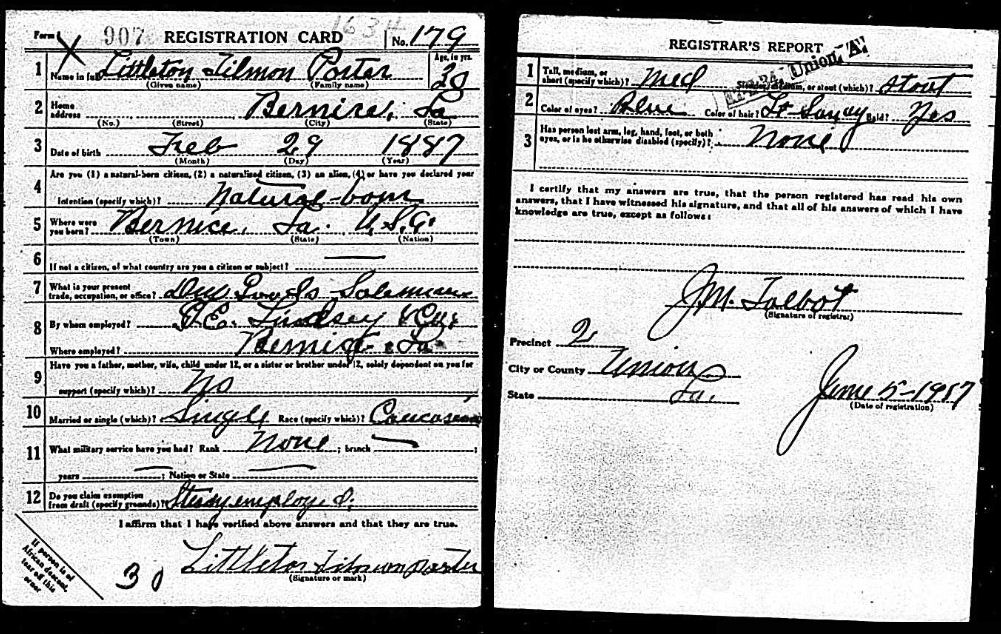 Form 1 907 REGISTRATION CARD 1634 No. 179
1 Name in full Littleton Tilmon Porter Age, in yrs. 30
(Given name) (Family name)
2 Home address Bernice, La
(No.) (Street) (City) (State)
3 Date of birth Feb 29 1887
(Month) (Day) (Year)
4 Are you (1) a natural-born citizen, (2) a naturalized citizen, (3) an alien, (4) or have you declared your
intention (specify which)? Natural-born
5 Where were you born? Bernice, La. U.S.A.
(Town) (State) (Nation)
6 If not a citizen, of what country are you a citizen or subject?
7 What is your present trade, occupation, or office? Dry Goods Salesman
8 By whom employed? Lindsey & Co.
Where employed? Bernice, La
9 Have you a father, mother, wife, child under 12, or a sister or brother under 12, solely dependent on you for
support (specify which)? No
10 Married or single (which)? Single Race (specify which)? Caucasian
11 What military service have you had? Rank None ; branch ;
years ; Nation or State
12 Do you claim exemption from draft (specify grounds)? employed.
I affirm that I have verified above answers and that they are true.
Littleton Tilmon Porter
(Signature or mark)
If person is of African descent, tear off this corner
30
REGISTRAR'S REPORT
Union "A"
1 Tall, medium, or short (specify which)? Med Slender, medium, or stout (which)? Stout
2 Color of eyes? Blue Color of hair? Lt Sandy Bald? Yes
3 Has person lost arm, leg, hand, foot, or both eyes, or is he otherwise disabled (specify)? None
I certify that my answers are true, that the person registered has read his own
answers, that I have witnessed his signature, and that all of his answers of which I have
knowledge are true, except as follows:
J.M. Talbot
(Signature of registrar)
Precinct 2
City or County Union
State La.
June 5-1917
(Date of registration)